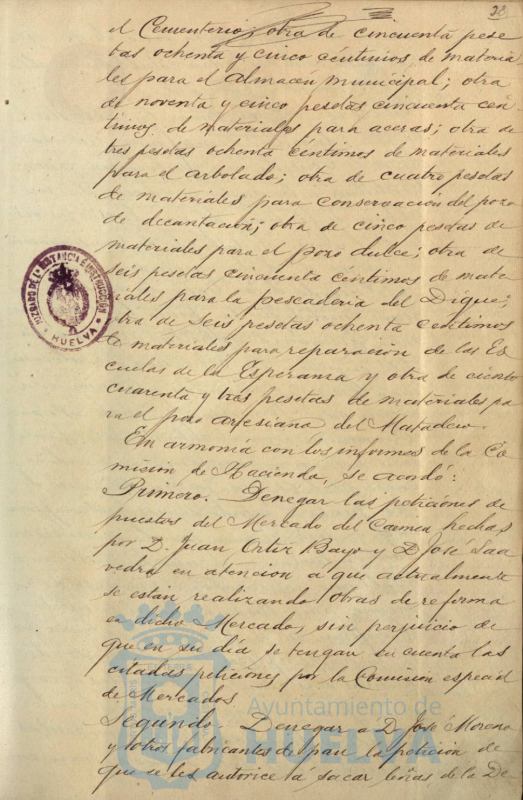 28
el Cementerio; otra de cincuenta pese
tas ochenta y cinco céntimos de materia
les para el Almacén municipal; otra
de noventa y cinco pesetas cincuenta cén
timos de materiales para aceras; otra de
tres pesetas ochenta céntimos de materiales
para el arbolado; otra de cuatro pesetas
de materiales para conservación del pozo
de decantación; otra de cinco pesetas de
materiales para el pozo dulce; otra de
seis pesetas cincuenta céntimos de mate
riales para la pescadería del Dique;
otra de seis pesetas ochenta céntimos
de materiales para reparación de las Es
cuelas de la Esperanza y otra de ciento
cuarenta y tres pesetas de materiales pa
ra el pozo artesiano del Matadero.
En armonía con los informes de la Co
misión de Hacienda, se acordó:
Primero. Denegar las peticiones de
puestos del Mercado del Carmen hechas
por D. Juan Ortiz Bayo y D. José Saa
vedra en atención á que actualmente
se están realizando obras de reforma
en dicho Mercado, sin perjuicio de
que en su día se tengan en cuenta las
citadas peticiones por la Comisión especial
de Mercados.
Segundo. Denegar a D. José Moreno
y otros fabricantes de pan la petición de
que se les autorice á sacar leñas de la De
JUZGADO DE 1ª INSTANCIA E INSTRUCCIÓN
HUELVA
Ayuntamiento de
HUELVA